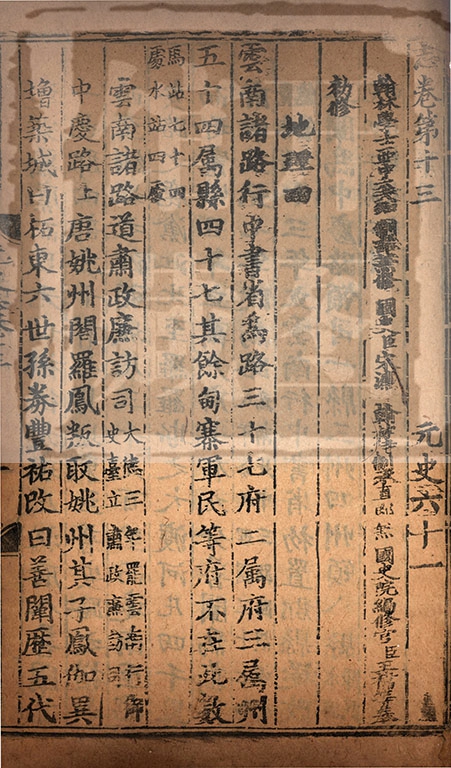 志卷第十三　元史六十一
翰林學士亞中大夫知制誥兼修國史臣宋濂　翰林待制承直郎兼國史院編修官臣王禕等奉
勑修
地理四
雲南諸路行中書省爲路三十七府二属府三属州
五十四属縣四十七其餘甸寨軍民等府不在此數
馬站七十四
處水站四處
雲南諸路道肅政廉訪司大德三年罷雲南行御史臺立肅政廉訪司
中慶路上唐姚州閣羅鳳叛取姚州其子鳳伽異
增築城曰柘東六世孫券豐祐改曰善闡歷五代